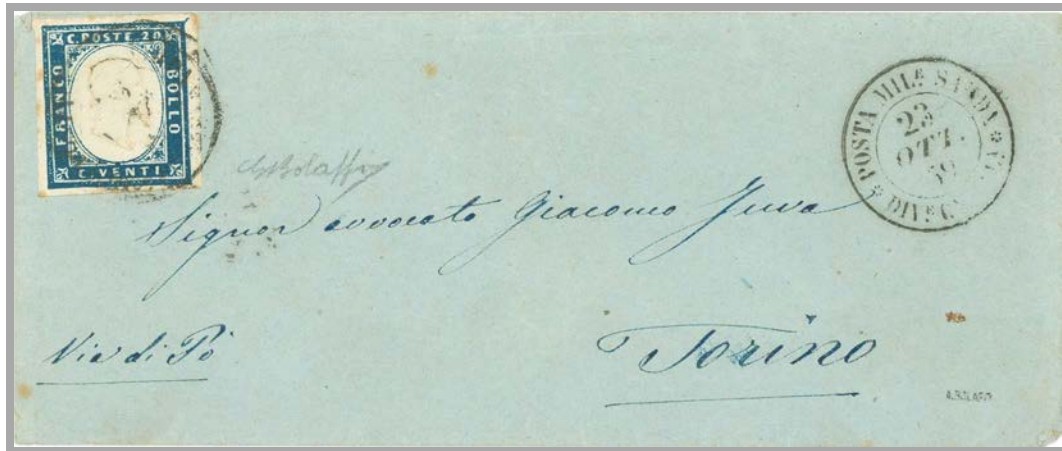 C. POSTE 20
FRANCO
BOLLO
C. VENTI
POSTA MILE SARDA
23
OTT.
59
DIVE
GBolaffi
Signor avvocato Giacomo Juva
Via di Pò
Torino
A. BOLAFFI